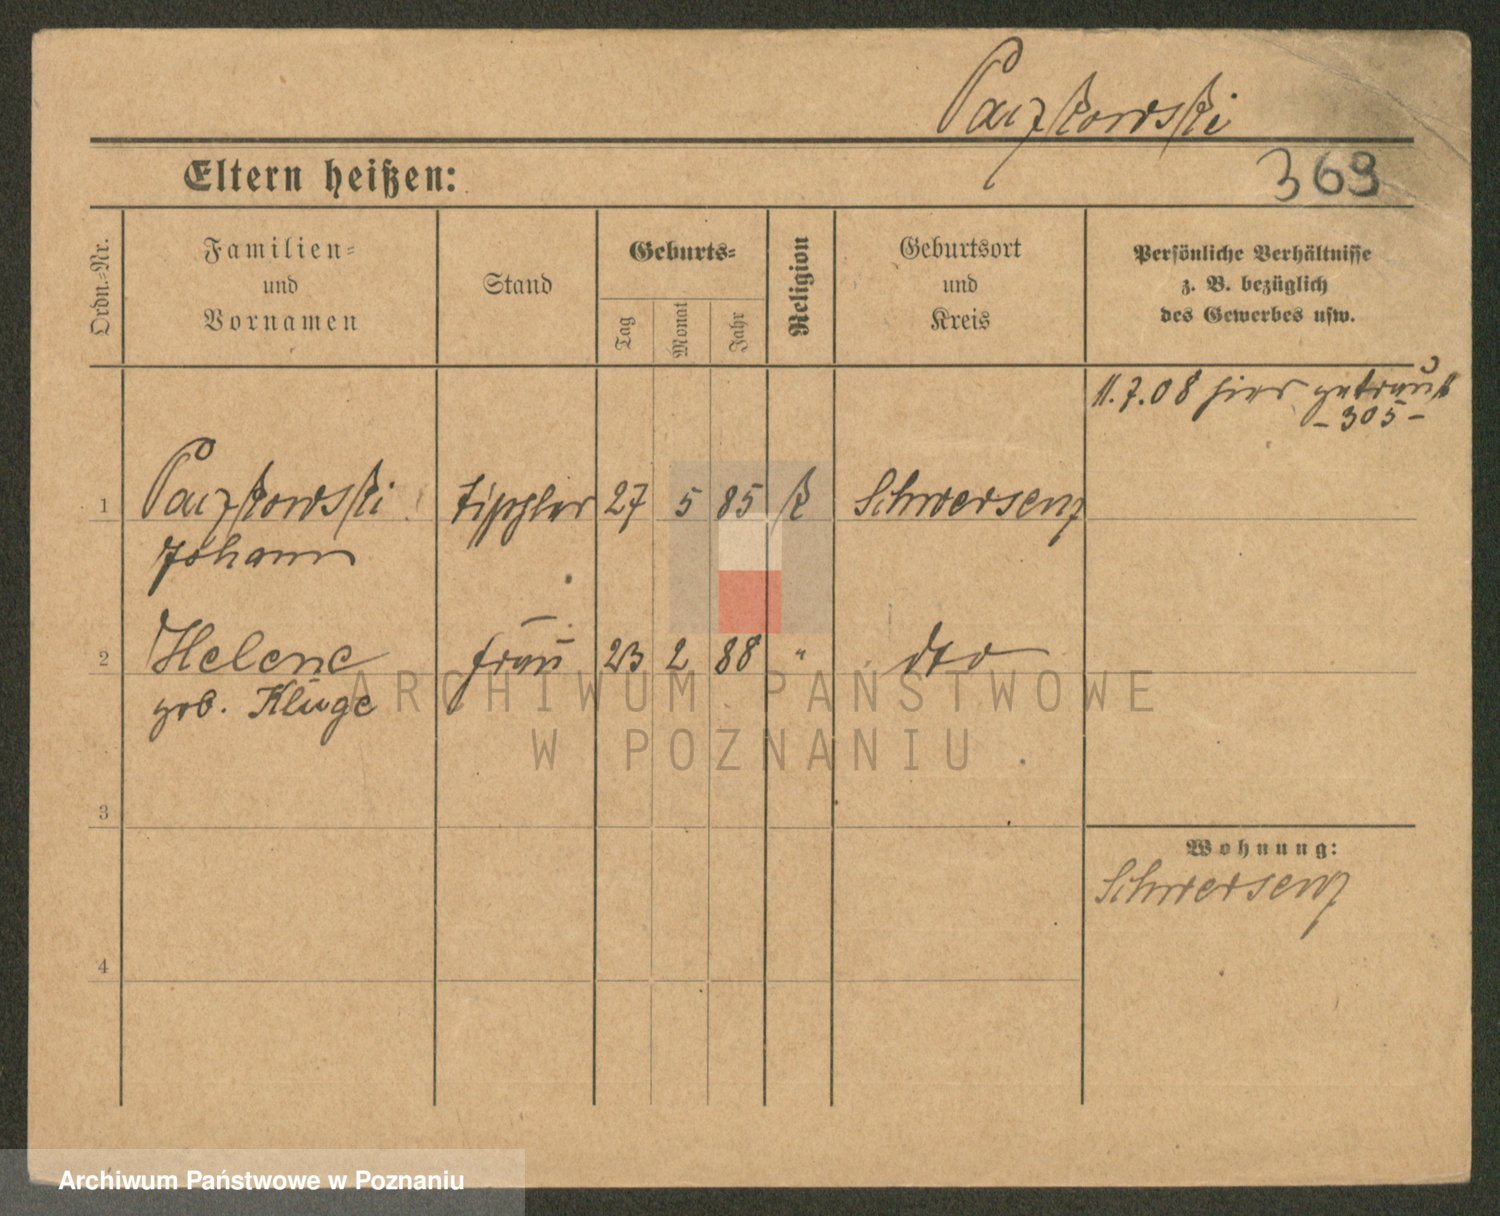 Paczkowski
Eltern heißen:
369
Ordn.-Nr.
Familien-
und
Vornamen
Stand
Geburts-
Tag
Monat
Jahr
Religion
Geburtsort
und
Kreis
Persönliche Verhältnisse
z. B. bezüglich
des Gewerbes usw.
11.7.08 hier getraut
- 305 -
1 Paczkowski Tischler 27 5 85 k Schwersenz
Johann
2 Helene Frau 23 2 88 " dto
geb. Kluge
ARCHIWUM PAŃSTWOWE
W POZNANIU
3
Wohnung:
Schwersenz
4
Archiwum Państwowe w Poznaniu